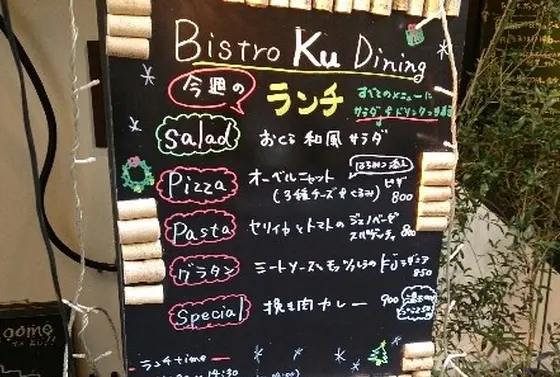 Bistro Ku Dining
今週の ランチ すべてのメニューに
サラダ & ドリンク
Salad おくら 和風 サラダ
Pizza オーベルニャット はちみつ添え
(3種チーズ & くるみ) ピザ 800
Pasta セリイカとトマトの ジェノベーゼ
スパゲッティ 800
グラタン ミートソースとモッツァレラの ラザニア
850
Special 挽き肉カレー 900
ランチtime
14:30